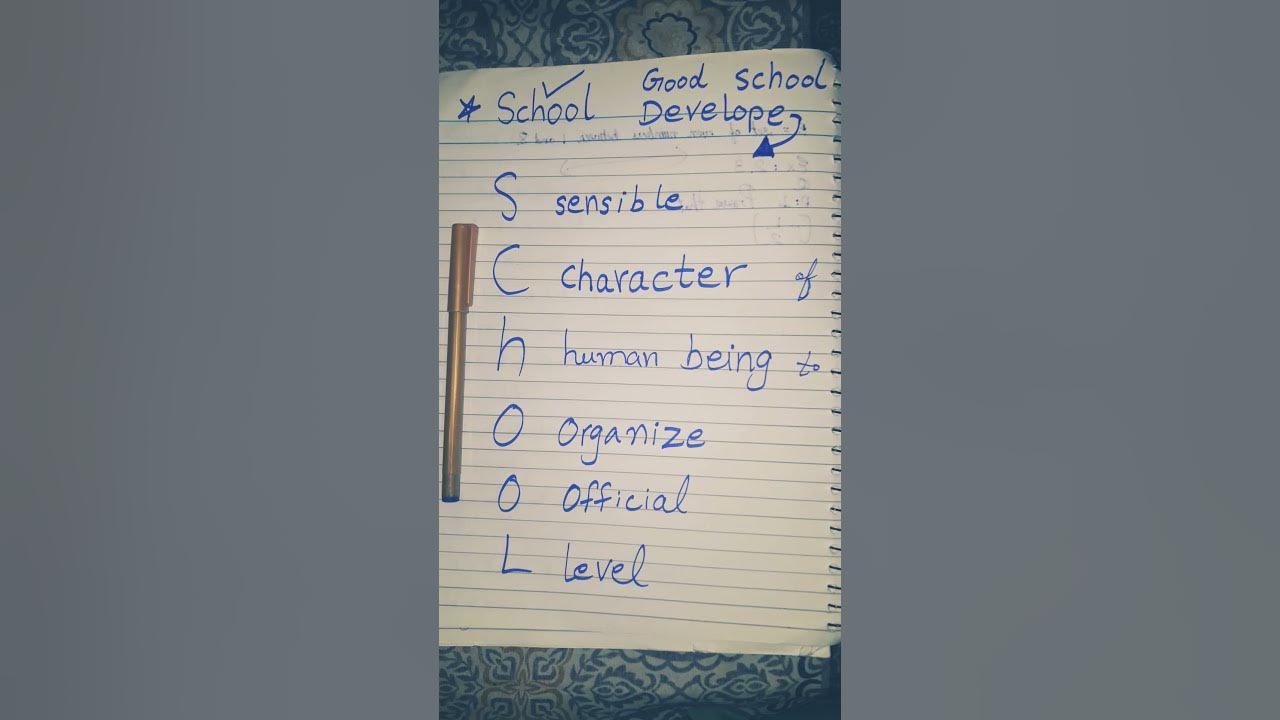 * School Good school
Develope
S sensible
C character of
h human being to
O Organize
O Official
L level